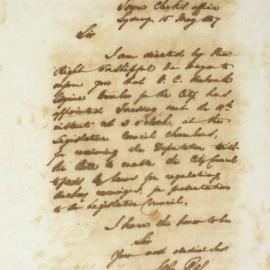 Town Clerk's Office
Sydney 15 May 1857
Sir
I am directed by the
Right Worshipful the Mayor to
inform you that
Member for the City has
appointed Tuesday next the 19th
instant at 3 o'clock, at the
Legislative Council Chambers,
for receiving the Deputation with
the Bill to enable the City Council
to by laws for regulating
for presentation
to the Legislative Council.
I have the honor to be
Sir
Your most obedient